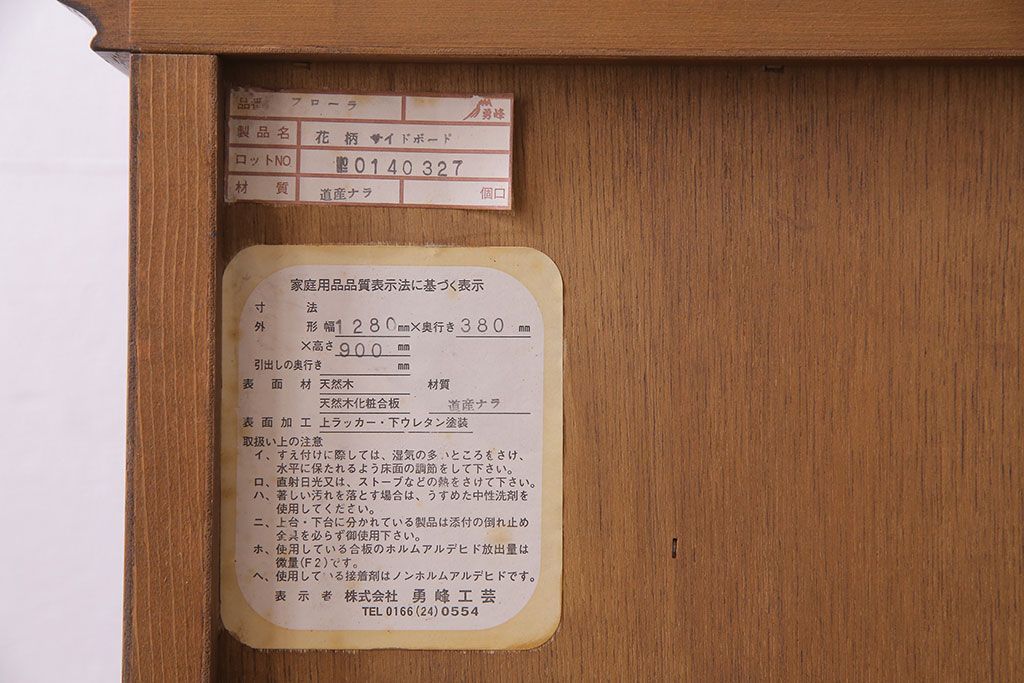 品番 フローラ 勇峰
製品名 花柄 サイドボード
ロットNO 0140327
材質 道産ナラ 個口
家庭用品品質表示法に基づく表示
寸法
外形 幅1280mm×奥行き380mm
×高さ900mm
引出しの奥行き mm
表面材 天然木 材質
天然木化粧合板 道産ナラ
表面加工 上ラッカー・下ウレタン塗装
取扱い上の注意
イ、すえ付けに際しては、湿気の多いところをさけ、
水平に保たれるよう床面の調節をして下さい。
ロ、直射日光又は、ストーブなどの熱をさけて下さい。
ハ、著しい汚れを落とす場合は、うすめた中性洗剤を
使用してください。
ニ、上台・下台に分かれている製品は添付の倒れ止め
金具を必らず御使用下さい。
ホ、使用している合板のホルムアルデヒド放出量は
微量(F2)です。
ヘ、使用している接着剤はノンホルムアルデヒドです。
表示者 株式会社 勇峰工芸
TEL0166(24)0554